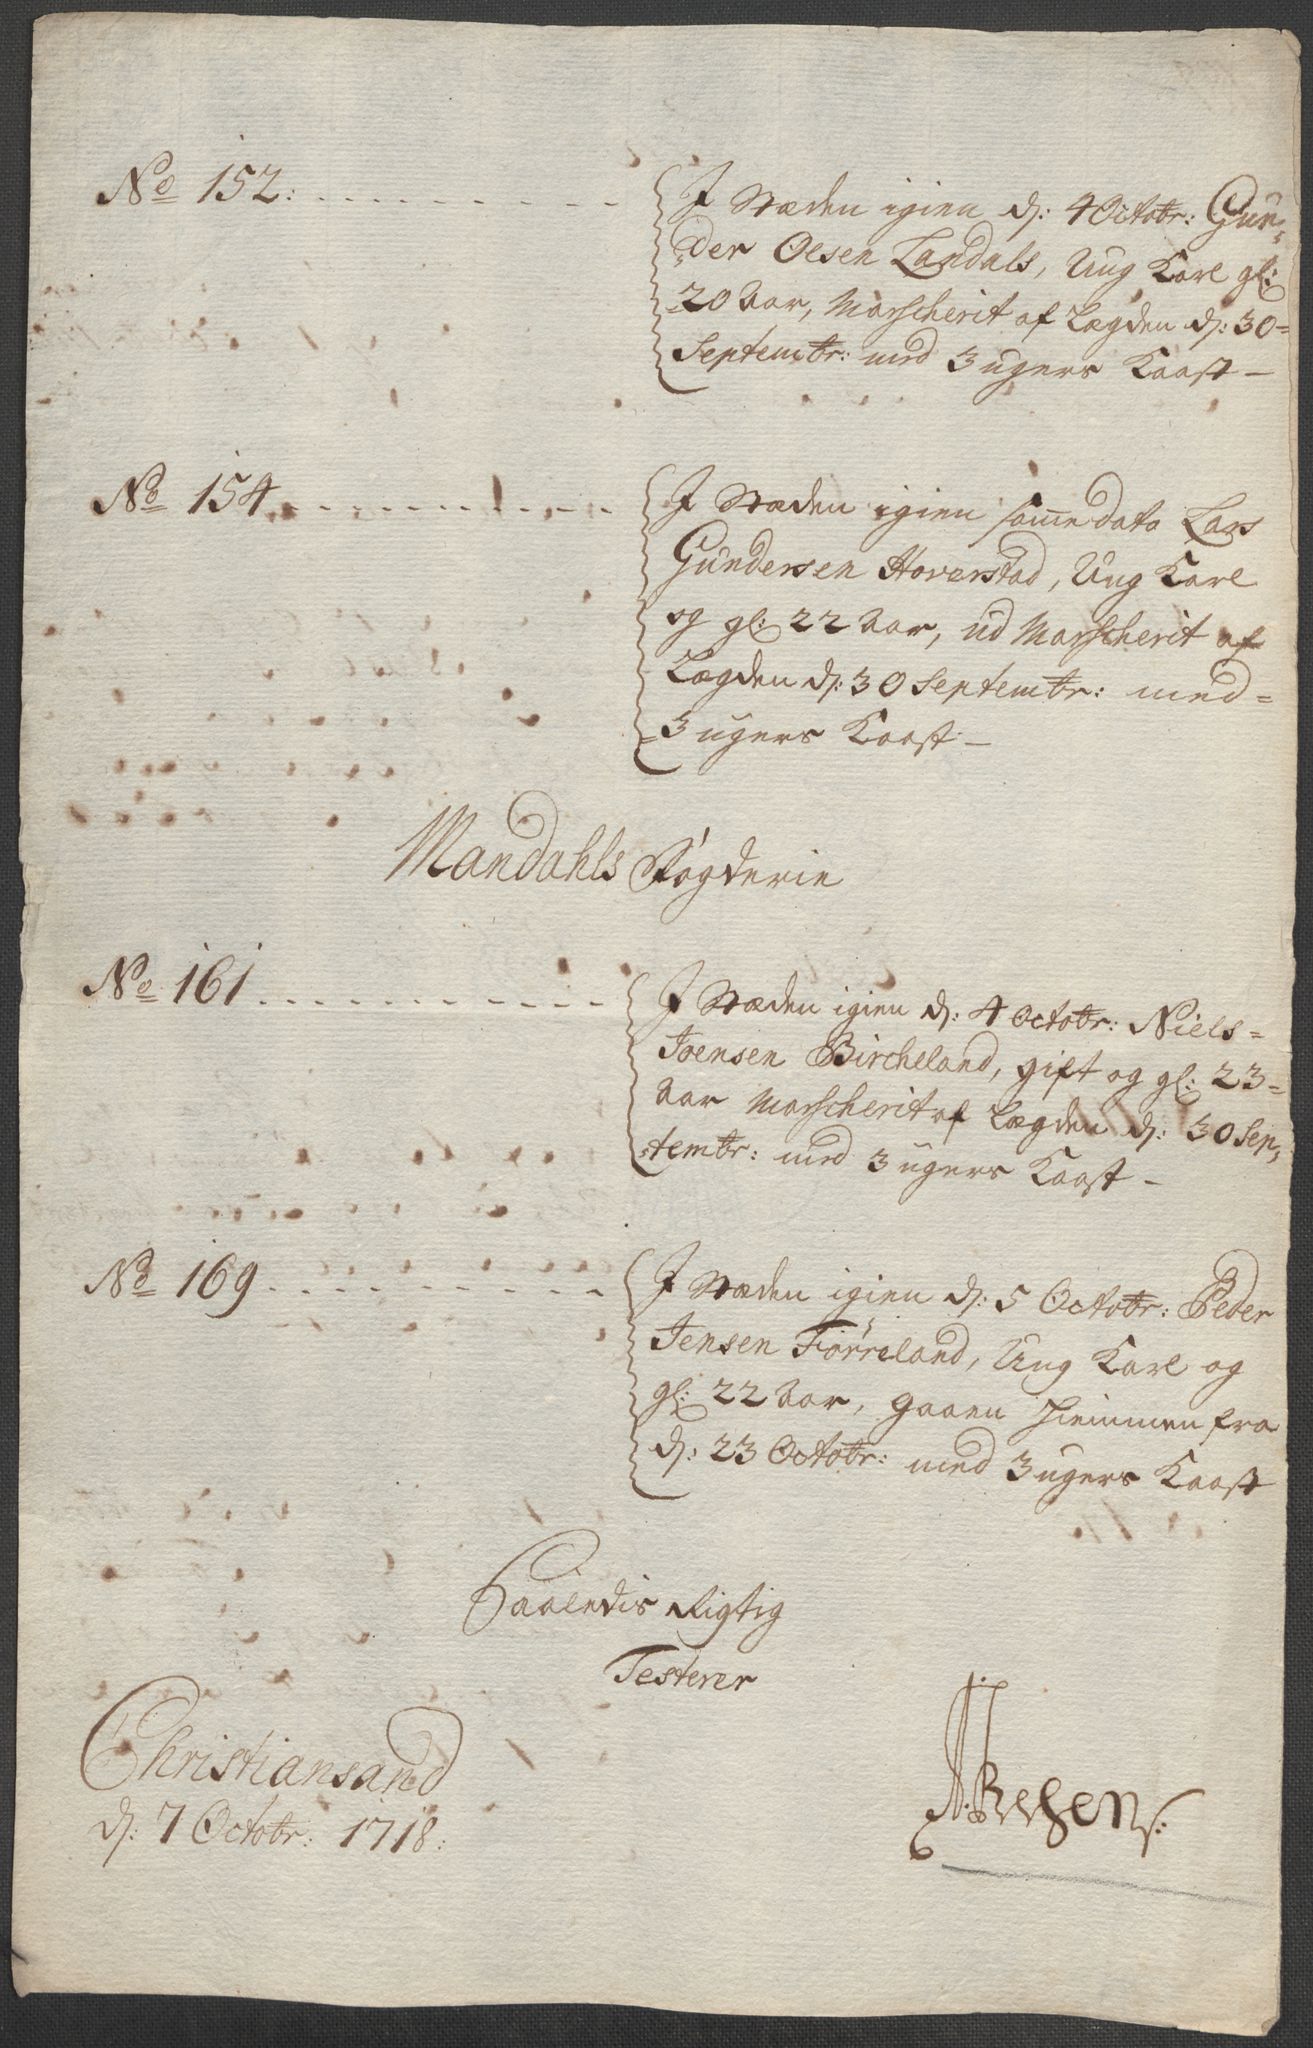 No 152: . . . . . . . . . .
I Stæden igien d: 4 Octobr: Gun-
der Olsen Landals, Ung Karl gl:
20 Aar, Marscherit af Lægden d: 30
Septembr: med 3 ugers Kaast -
No 154 . . . . . . . . . .
I Stæden igien samme dato Lars
Gundersen Haverstad, Ung Karl
og gl: 22 Aar, ud Marscherit af
Lægden d: 30 Septembr: med
3 ugers Kaast -
Mandahls Fögderie
No 161 . . . . . . . . . .
I Stæden igien d: 4 Octobr: Niels
Joensen Bircheland, gift og gl: 23
Aar Marscherit af Lægden d: 30 Sep-
tembr: med 3 ugers Kaast -
No 169 . . . . . . . . . .
I Stæden igien d: 5 Octobr: Peder
Jensen Förreland, Ung Karl og
gl: 22 Aar, gaaen hiemmen fra
d: 23 Octobr: med 3 ugers Kaast
Saaledis Rigtig
Testerer
Christiansand
d: 7 Octobr: 1718: